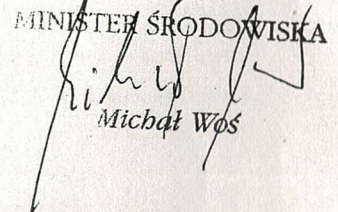 MINISTER ŚRODOWISKA
Michał Woś